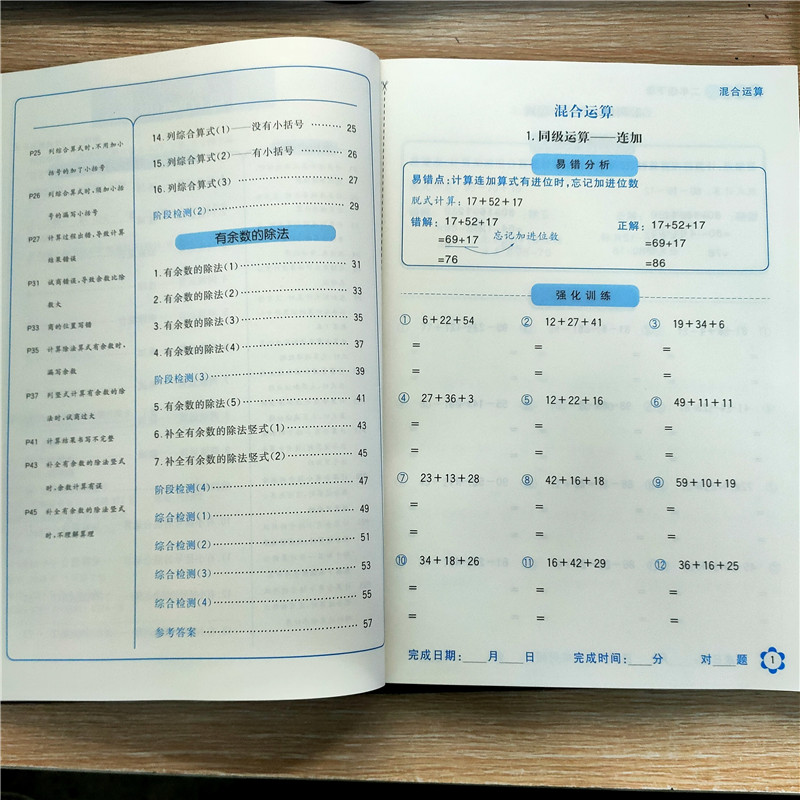 P25 列综合算式时,不用加小
括号的加了小括号
P26 列综合算式时,须加小括
号的漏写小括号
P27 计算过程出错,导致计算
结果错误
P31 试商错误,导致余数比除
数大
P33 商的位置写错
P35 计算除法算式有余数时,
漏写余数
P37 列竖式计算有余数的除
法时,试商过大
P41 计算结果书写不完整
P43 补全有余数的除法竖式
时,余数计算有误
P45 补全有余数的除法竖式
时,不理解算理
14.列综合算式(1)——没有小括号 ……… 25
15.列综合算式(2)——有小括号 ………… 26
16.列综合算式(3) ……………………… 27
阶段检测(2) ……………………………… 29
有余数的除法
1.有余数的除法(1) ……………………… 31
2.有余数的除法(2) ……………………… 33
3.有余数的除法(3) ……………………… 35
4.有余数的除法(4) ……………………… 37
阶段检测(3) ……………………………… 39
5.有余数的除法(5) ……………………… 41
6.补全有余数的除法竖式(1) …………… 43
7.补全有余数的除法竖式(2) …………… 45
阶段检测(4) ……………………………… 47
综合检测(1) ……………………………… 49
综合检测(2) ……………………………… 51
综合检测(3) ……………………………… 53
综合检测(4) ……………………………… 55
参考答案 ………………………………… 57
混合运算
混合运算
1.同级运算——连加
易错分析
易错点:计算连加算式有进位时,忘记加进位数
脱式计算:17+52+17
错解: 17+52+17 正解: 17+52+17
=69+17 忘记加进位数 =69+17
=76 =86
强化训练
① 6+22+54 ② 12+27+41 ③ 19+34+6
= = =
= = =
④ 27+36+3 ⑤ 12+22+16 ⑥ 49+11+11
= = =
= = =
⑦ 23+13+28 ⑧ 42+16+18 ⑨ 59+10+19
= = =
= = =
⑩ 34+18+26 ⑪ 16+42+29 ⑫ 36+16+25
= = =
= = =
完成日期:___月___日 完成时间:___分 对___题 1